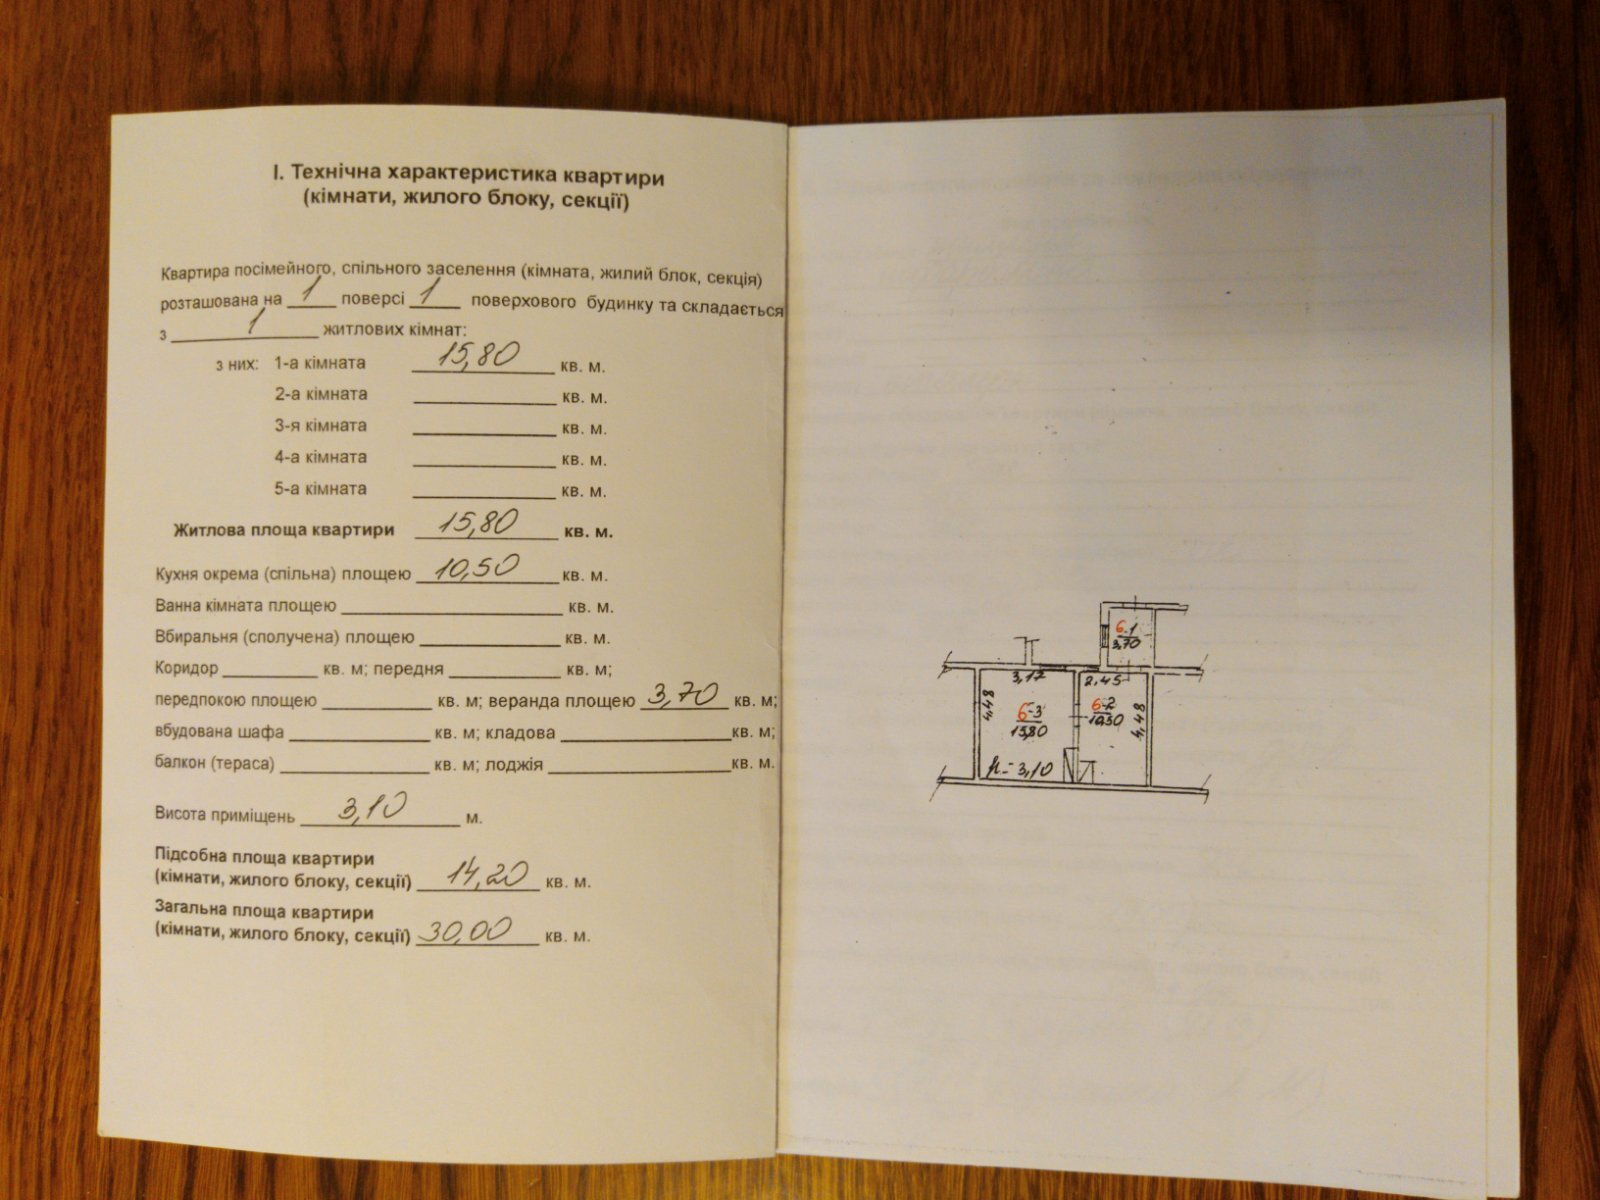 І. Технічна характеристика квартири
(кімнати, жилого блоку, секції)
Квартира посімейного, спільного заселення (кімната, жилий блок, секція)
розташована на 1 поверсі 1 поверхового будинку та складається
з 1 житлових кімнат:
з них: 1-а кімната 15,80 кв. м.
2-а кімната кв. м.
3-я кімната кв. м.
4-а кімната кв. м.
5-а кімната кв. м.
Житлова площа квартири 15,80 кв. м.
Кухня окрема (спільна) площею 10,50 кв. м.
Ванна кімната площею кв. м.
Вбиральня (сполучена) площею кв. м.
Коридор кв. м; передня кв. м;
передпокою площею кв. м; веранда площею 3,70 кв. м;
вбудована шафа кв. м; кладова кв. м;
балкон (тераса) кв. м; лоджія кв. м.
Висота приміщень 3,10 м.
Підсобна площа квартири
(кімнати, жилого блоку, секції) 14,20 кв. м.
Загальна площа квартири
(кімнати, жилого блоку, секції) 30,00 кв. м.
6-1
3,70
3,17 2,45
4,48 6-3 6-2 4,48
h=3,10